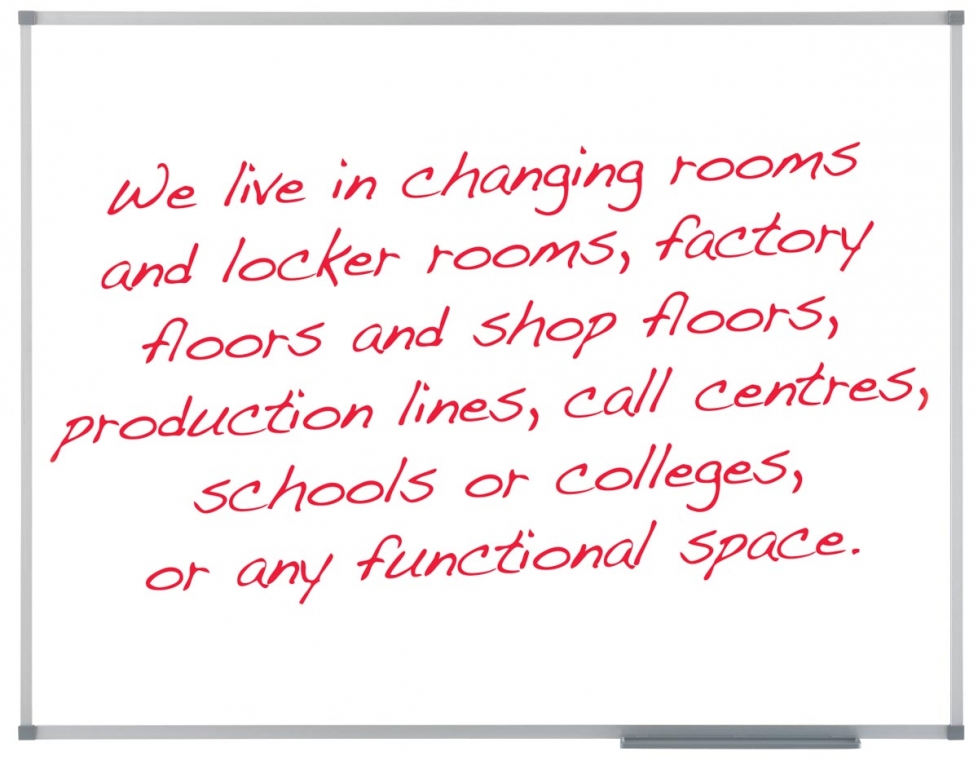 We live in changing rooms
and locker rooms, factory
floors and shop floors,
production lines, call centres,
schools or colleges,
or any functional space.